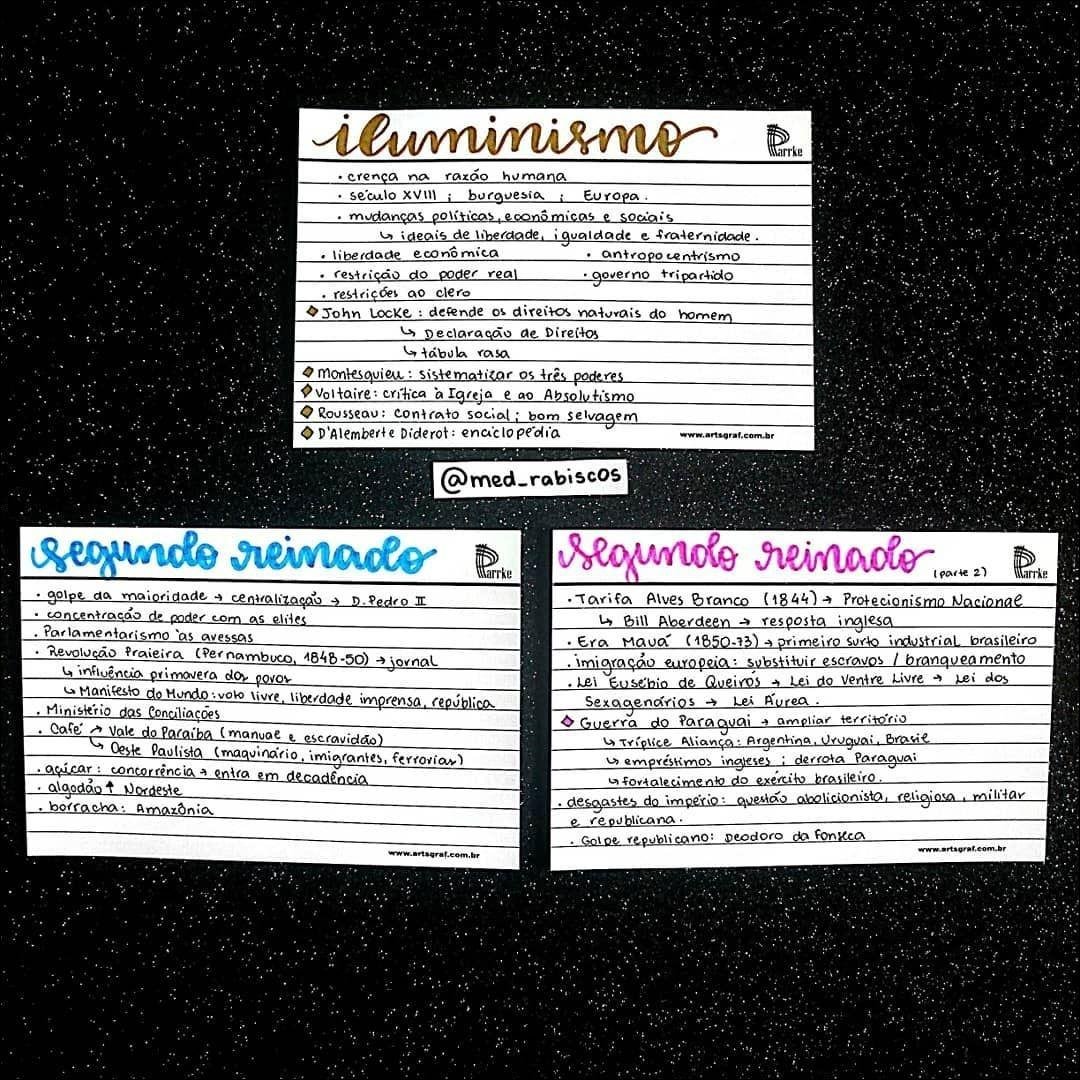 iluminismo
Parrke
• crença na razão humana
• século XVIII ; burguesia ; Europa.
• mudanças políticas, econômicas e sociais
↳ ideais de liberdade, igualdade e fraternidade.
• liberdade econômica • antropocentrismo
• restrição do poder real • governo tripartido
• restrições ao clero
◆ John Locke : defende os direitos naturais do homem
↳ Declaração de Direitos
↳ tábula rasa
◆ Montesquieu : sistematizar os três poderes
◆ Voltaire : crítica à Igreja e ao Absolutismo
◆ Rousseau : contrato social ; bom selvagem
◆ D'Alembert e Diderot : enciclopédia
www.artsgraf.com.br
@med_rabiscos
segundo reinado
Parrke
• golpe da maioridade → centralização → D. Pedro II
• concentração de poder com as elites
• Parlamentarismo às avessas
• Revolução Praieira (Pernambuco, 1848-50) → jornal
↳ influência primavera dos povos
↳ Manifesto do Mundo : voto livre, liberdade imprensa, república
• Ministério das Conciliações
• Café ↗ Vale do Paraíba (manual e escravidão)
↳ Oeste Paulista (maquinário, imigrantes, ferrovias)
• açúcar : concorrência → entra em decadência
• algodão ↑ Nordeste
• borracha : Amazônia
www.artsgraf.com.br
segundo reinado (parte 2)
Parrke
• Tarifa Alves Branco (1844) → Protecionismo Nacional
↳ Bill Aberdeen → resposta inglesa
• Era Mauá (1850-73) → primeiro surto industrial brasileiro
• imigração europeia : substituir escravos / branqueamento
• Lei Eusébio de Queirós → Lei do Ventre Livre → Lei dos
Sexagenários → Lei Áurea.
◆ Guerra do Paraguai → ampliar território
↳ Tríplice Aliança : Argentina, Uruguai, Brasil
↳ empréstimos ingleses ; derrota Paraguai
↳ fortalecimento do exército brasileiro.
• desgastes do império : questão abolicionista, religiosa, militar
e republicana.
• Golpe republicano : Deodoro da Fonseca
www.artsgraf.com.br